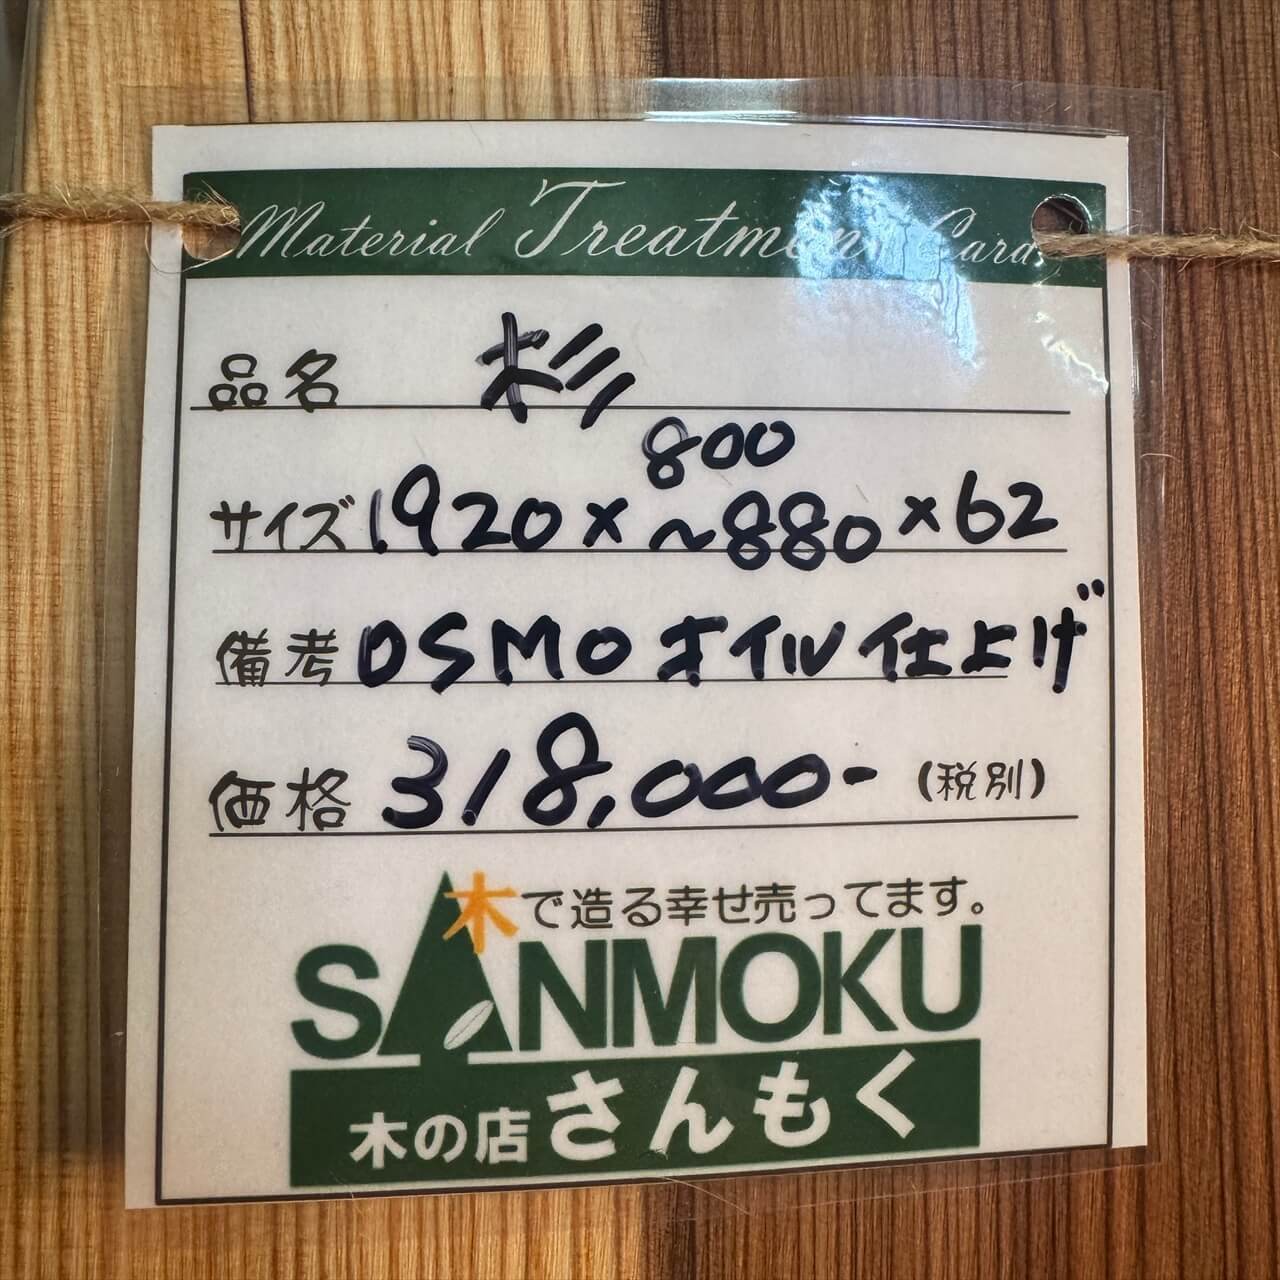 Material Treatment Card
品名 杉
サイズ 1920×800~880×62
備考 OSMOオイル仕上げ
価格 318,000- (税別)
木で造る幸せ売ってます。
SANMOKU
木の店さんもく